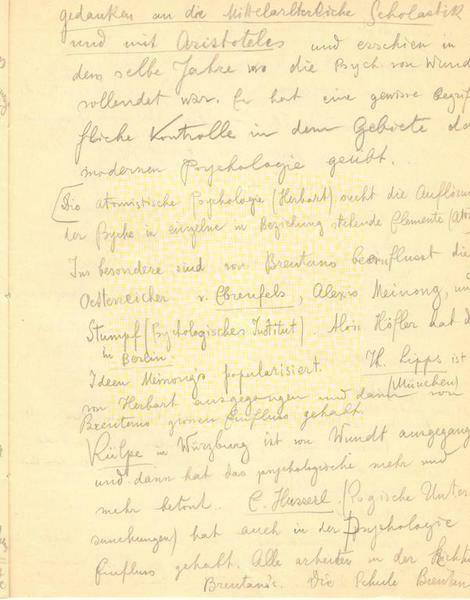 gedanken an die Mittelalterliche Scholastik
und mit Aristoteles und erschien in
dem selbe Jahre wo die Psych. von Wund
vollendet war. Er hat eine gewisse Begrif
fliche Kontrolle in dem Gebiete d
modernen Psychologie geübt.
[Die atomistische Psychologie (Herbart) sucht die Auflösun
der Psyche in einzelne in Beziehung stehende Elemente (At
Ins besondere sind von Brentano beeinflusst die
Oesterreicher v. Ehrenfels, Alexis Meinong, un
Stumpf (Psychologisches Institut). Alois Höfler hat d
in Berlin.
Ideen Meinongs popularisiert. Th. Lipps ist
(München)
von Herbart ausgegangen und dann von
Brentano grossen Einfluss gehabt.
Külpe in Würzburg ist von Wundt ausgegang
und dann hat das psychologische mehr und
mehr betont. E. Husserl (Logische Unter
suchungen) hat auch in der Psychologie
Einfluss gehabt. Alle arbeiten in der Richt
Brentano's. Die Schule Brentan